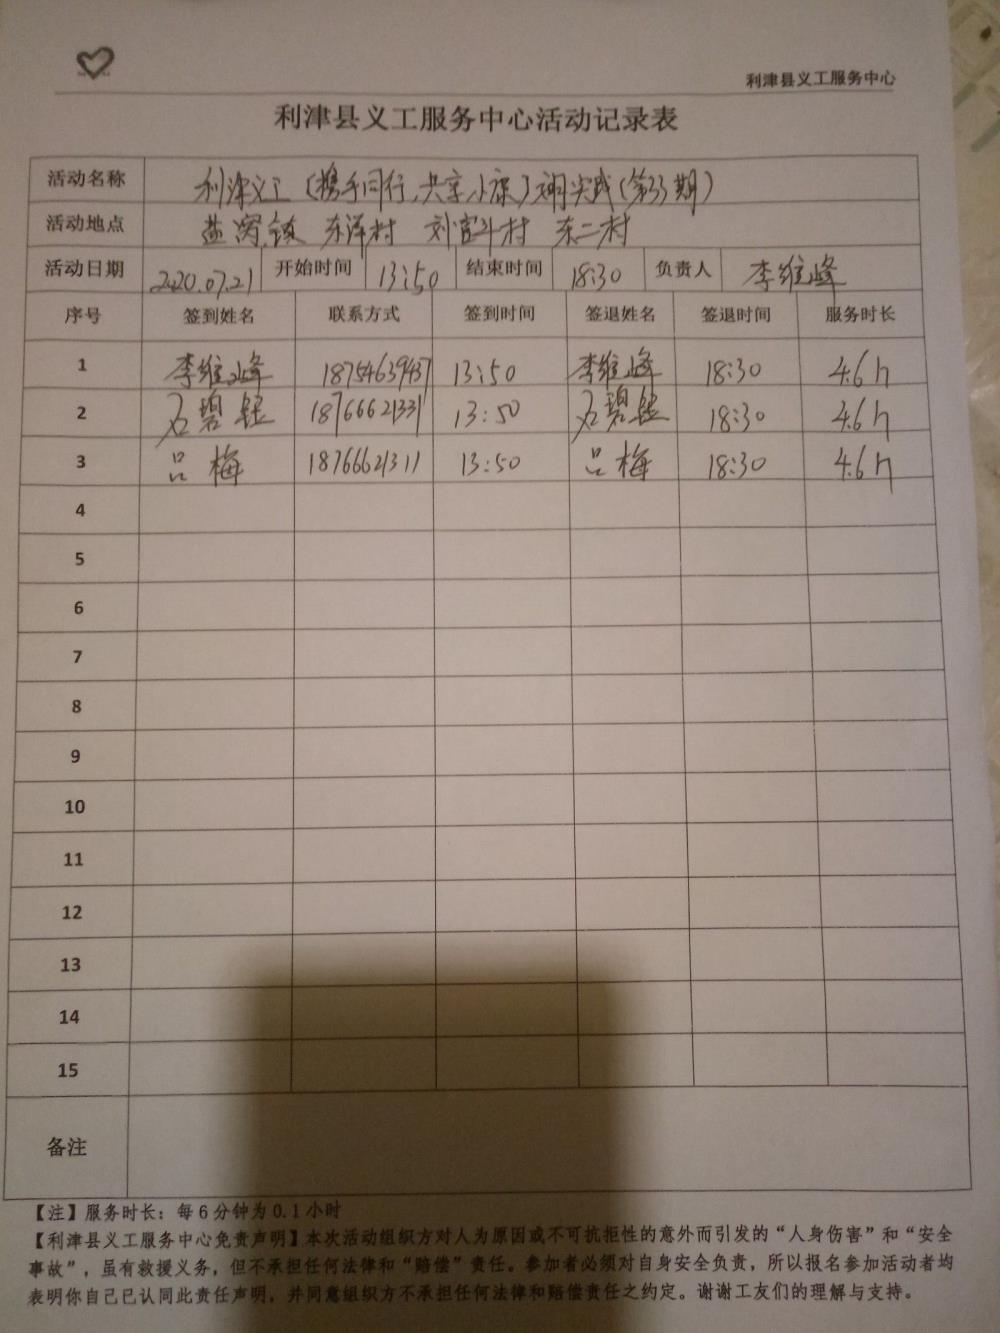 利津县义工服务中心
利津县义工服务中心活动记录表
活动名称 利津义工(携手同行,共享小康)文明实践(第33期)
活动地点 盐窝镇 东洋村 刘官斗村 东二村
活动日期 2020.07.21 开始时间 13:50 结束时间 18:30 负责人 李维峰
序号 签到姓名 联系方式 签到时间 签退姓名 签退时间 服务时长
1 李维峰 18754639437 13:50 李维峰 18:30 4.6h
2 石碧 18766621331 13:50 石碧 18:30 4.6h
3 吕梅 18766621311 13:50 吕梅 18:30 4.6h
4
5
6
7
8
9
10
11
12
13
14
15
备注
【注】服务时长:每6分钟为0.1小时
【利津县义工服务中心免责声明】本次活动组织方对人为原因或不可抗拒性的意外而引发的“人身伤害”和“安全
事故”,虽有救援义务,但不承担任何法律和“赔偿”责任。参加者必须对自身安全负责,所以报名参加活动者均
表明你自己已认同此责任声明,并同意组织方不承担任何法律和赔偿责任之约定。谢谢工友们的理解与支持。